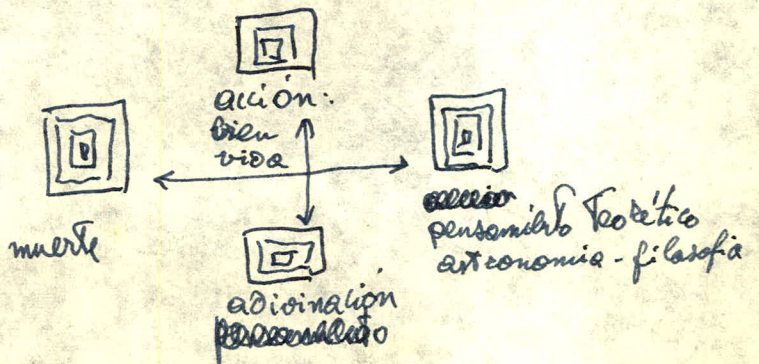 acción:
bien
vida
muerte
pensamiento Teorético
astronomia - filosofia
adivinación